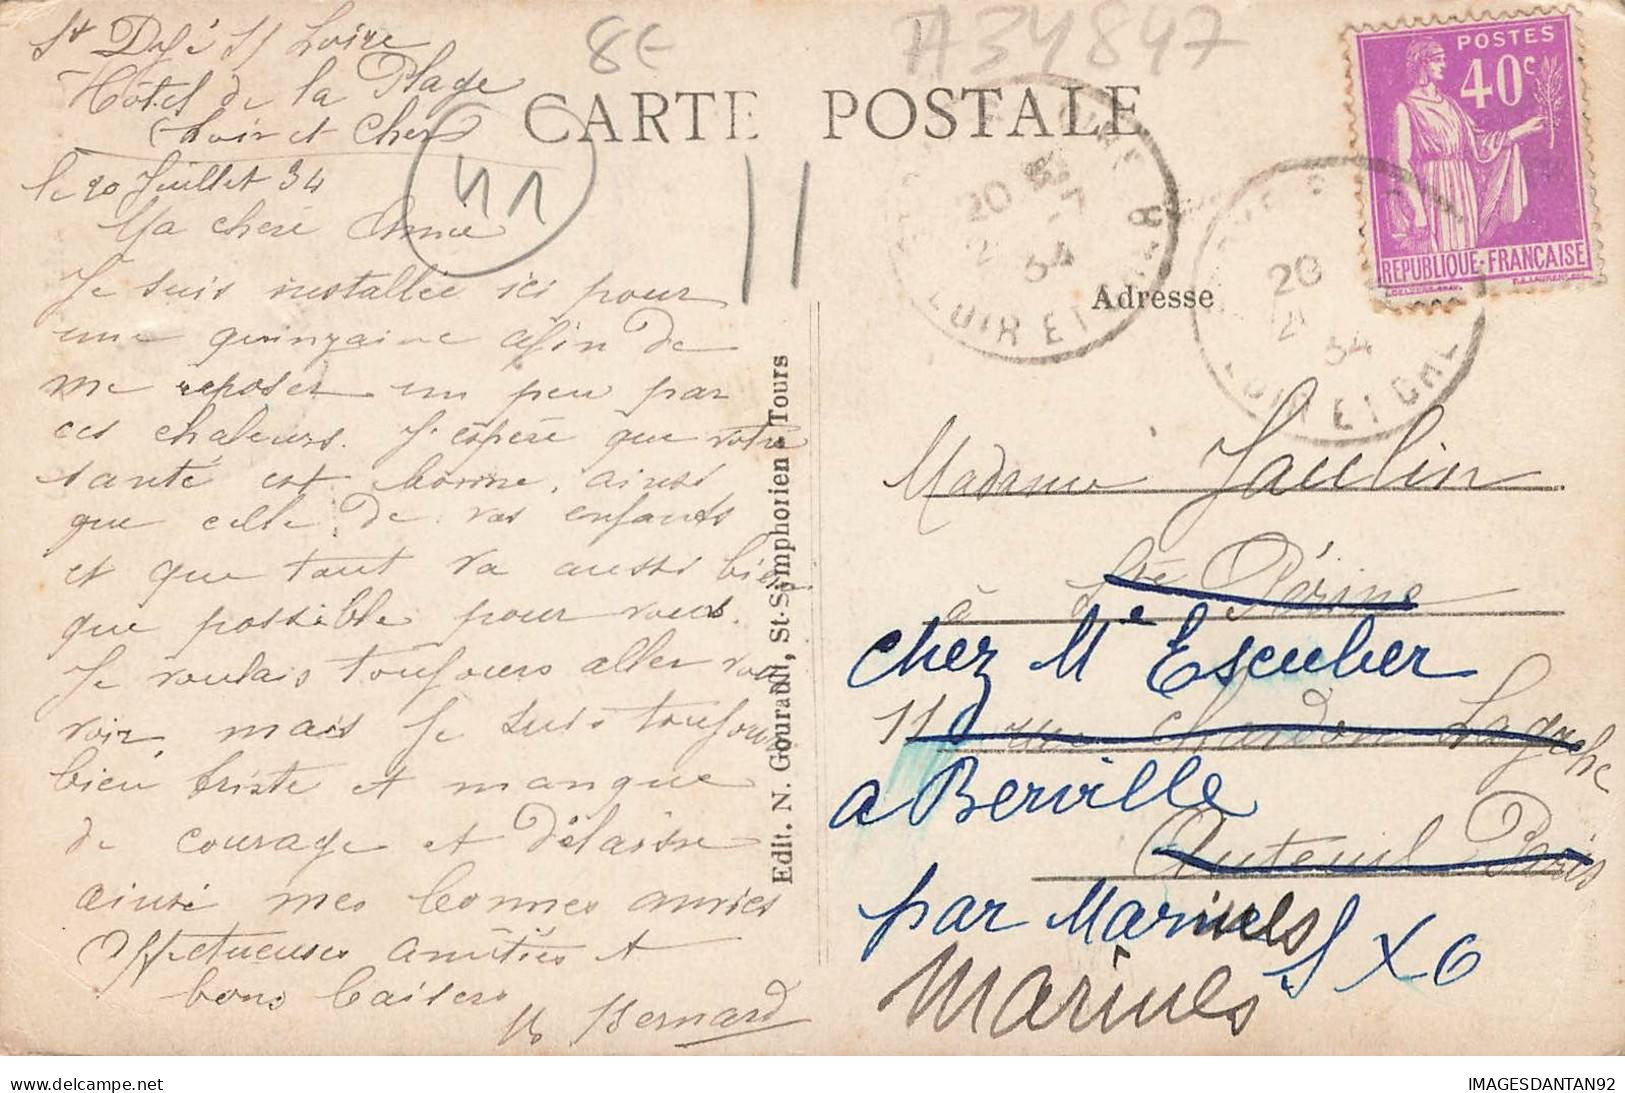 8€
A34847
St Dyé S/ Loire
Hôtel de la Plage
Loir et Cher
le 20 Juillet 34
41
11
Ma chère Amie
Je suis installée ici pour
une quinzaine afin de
me reposer un peu par
ces chaleurs. J'espère que votre
santé est bonne, ainsi
que celle de vos enfants
et que tout va aussi bien
que possible pour vous.
Je voulais toujours aller vous
voir, mais je suis toujours
bien triste et manque
de courage et délaisse
ainsi mes bonnes amies
Affectueuses amitiés et
bons baisers
Bernard
CARTE POSTALE
Edit. N. Gourault, St-Symphorien-Tours
POSTES
40c
REPUBLIQUE-FRANÇAISE
20
34
LOIR ET CHER
20
34
LOIR ET CHER
Adresse
Madame Jaulin
à Ste Périne
chez Me Escuber
11 rue Chardon Lagache
a Berville
Auteuil Paris
par Marines
S X O
Marines
delcampe.net
IMAGESDANTAN92